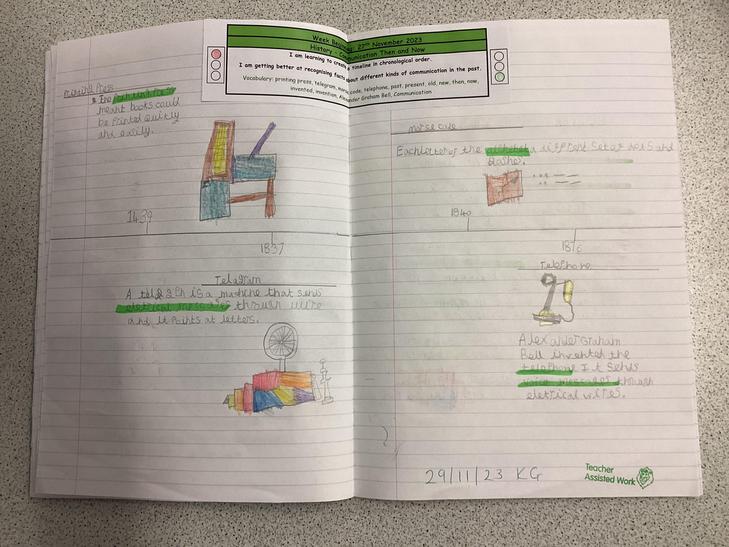 Week Beginning: 27th November 2023
History - Communication Then and Now
I am learning to create a timeline in chronological order.
I am getting better at recognising facts about different kinds of communication in the past.
Vocabulary: printing press, telegram, morse code, telephone, past, present, old, new, then, now,
invented, invention, Alexander Graham Bell, Communication
Printing Press
the
meant books could
be printed quickly
and easily.
1439
1837
Telagram
A is a machine that sends
eletrical messages through wire
and it points at letters.
morse code
Each letter of the alphabet a different set of dots and
dashes.
1840
1876
Telephone
Alexander Graham
Bell invented the
telephone It sends
voice messages through
eletrical wire.
29/11/23 KG
Teacher
Assisted Work